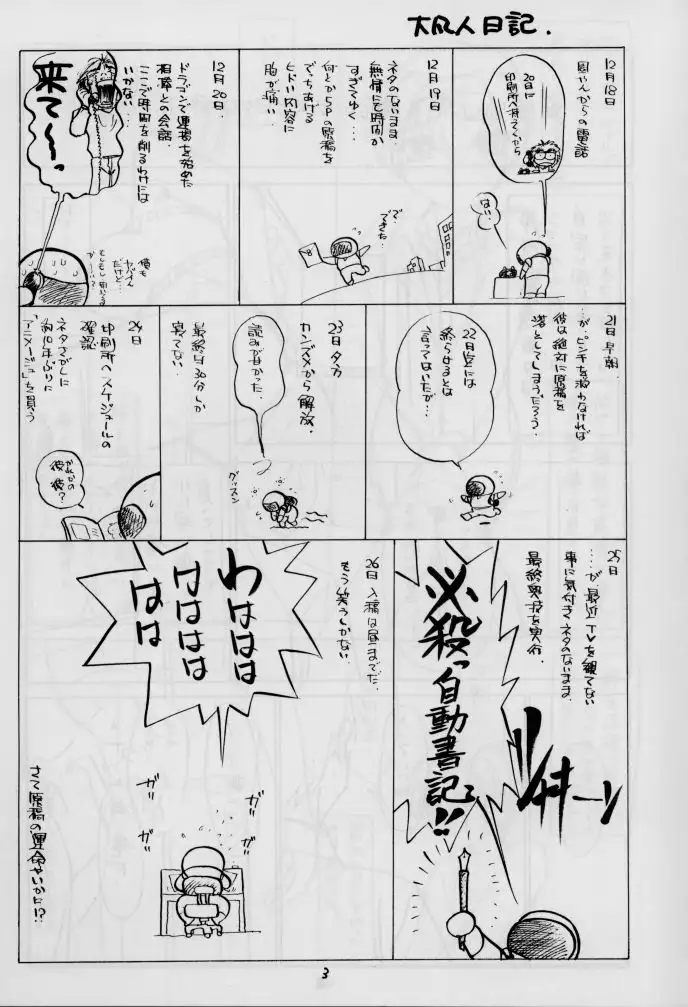 大凡人日記.
12月18日
風やんからの電話
20日に
印刷所へ持ってくから
はい…
12月19日
ネタのないまま
無情にも時間が
すぎてゆく…
何とか5Pの原稿を
でっちあげる
ヒドい内容に
胸が痛い.
で…
できた…
12月20日
ドラゴンで連載を始めた
相棒との会話.
ここで時間を削るわけには
いかない…
来て〜っ
俺も
ヤバイん
だけど…
21日 早朝
…が、ピンチを救わなければ
彼は絶対に原稿を
落としてしまうだろう.
22日矢には
終らせるとは
言ってはいたが…
23日 夕方
カンヅメから解放.
最終は30分しか
寝てない.
読みが甘かった.
グッスン
24日
印刷所へスケジュールの
確認
ネタさがしに
約10年ぶりに
「アニメージュ」を買う
25日
……が、最近TVを観てない
事に気付き、ネタのないまま
最終奥技を実行.
必殺っ
自動書記っ!!
ジャキーン
26日 入稿は昼までだ.
もう笑うしかない.
わははは
はははは
はは
ガリ
ガリ
ガリ
ガリ
さて原稿の運命やいかに!?
3